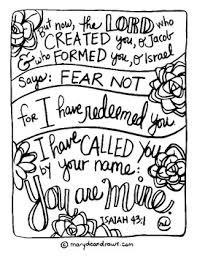 But now, the LORD who
CREATED you, O Jacob
& who FORMED you, O Israel
Says: FEAR NOT
for I have redeemed you
I have CALLED You
by your name:
You are Mine.
ISAIAH 43:1
© marydeandraws.com